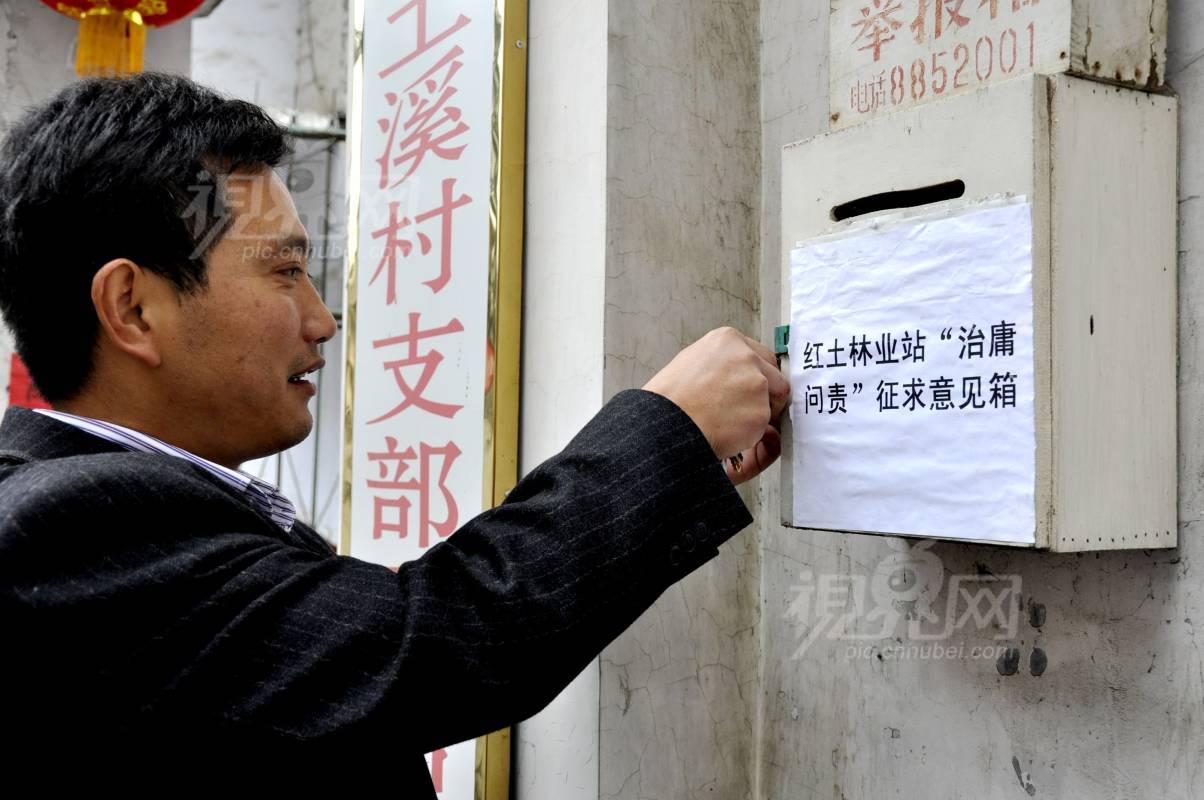 工溪村支部
举报箱
电话8852001
红土林业站“治庸
问责”征求意见箱
視界网
pic.cnhubei.com
視界网
pic.cnhubei.com